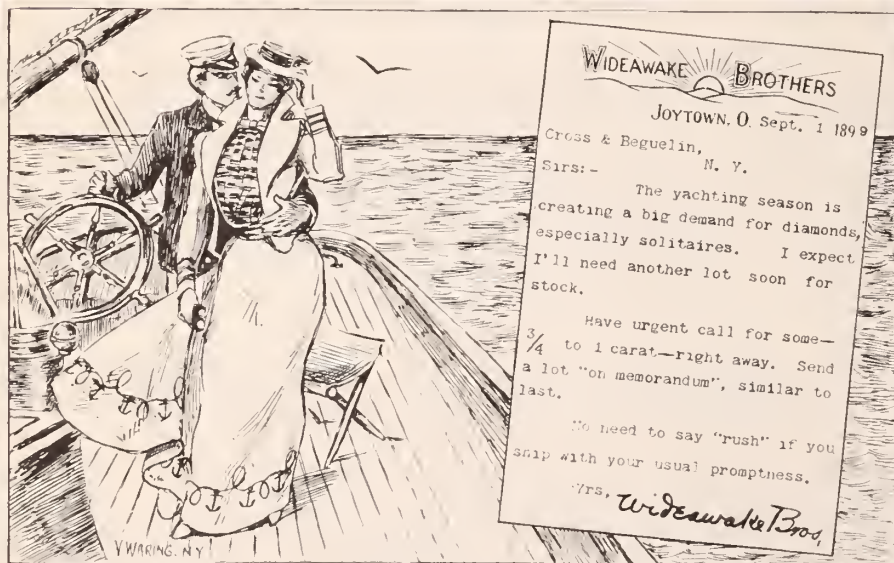 WIDEAWAKE BROTHERS
JOYTOWN, O. Sept. 1 1899
Cross & Beguelin,
N. Y.
Sirs:-
The yachting season is
creating a big demand for diamonds,
especially solitaires. I expect
I'll need another lot soon for
stock.
Have urgent call for some—
3/4 to 1 carat—right away. Send
a lot "on memorandum", similar to
last.
No need to say "rush" if you
ship with your usual promptness.
Yrs, Wideawake Bros,
V WARING. N.Y.